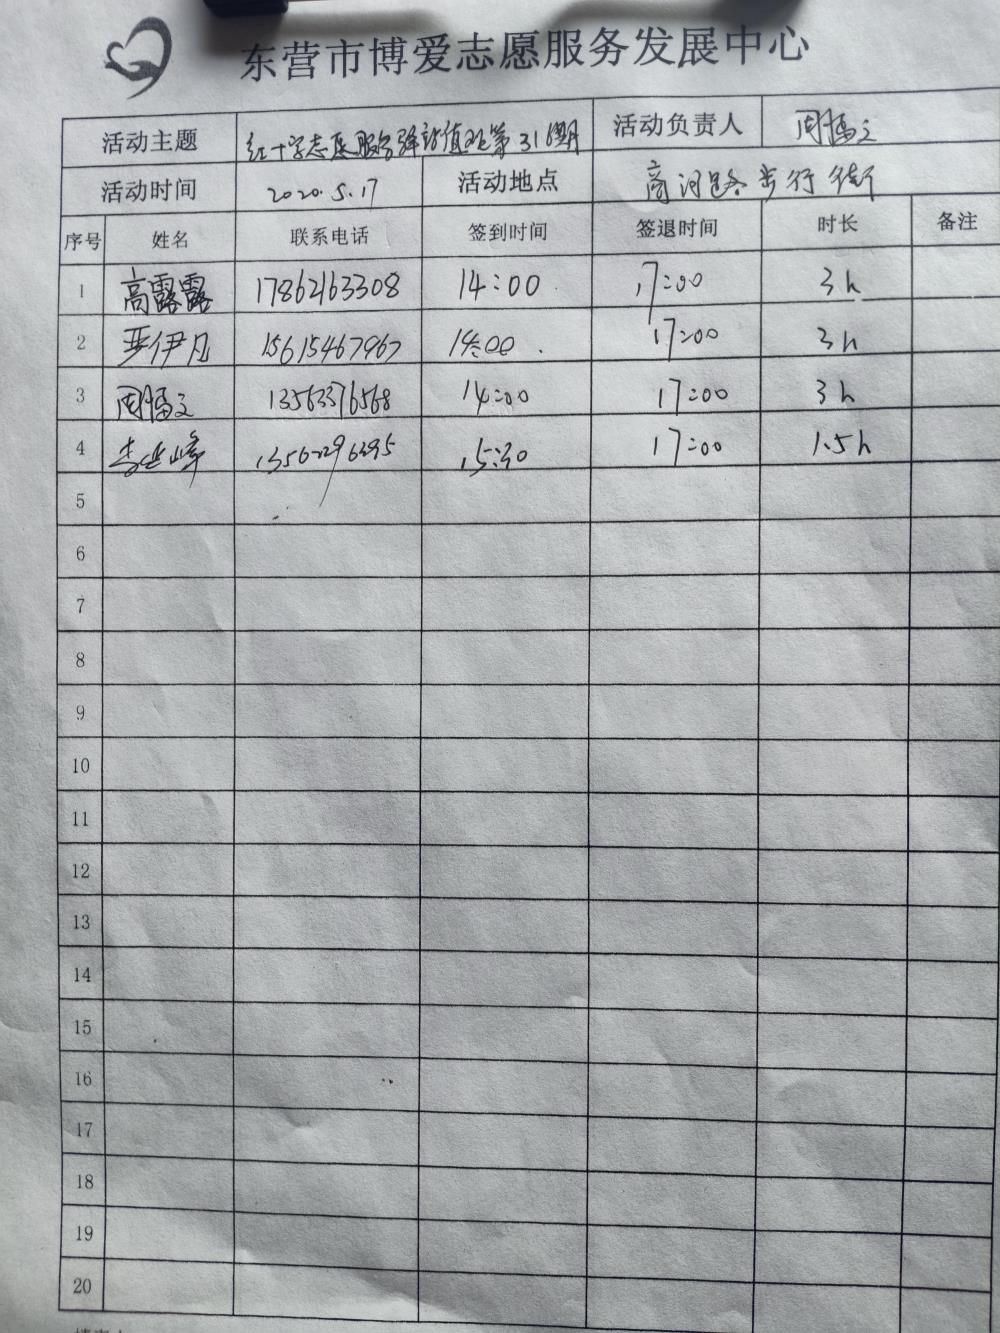 东营市博爱志愿服务发展中心
活动主题 红十字志愿服务驿站值班第316期 活动负责人 周福文
活动时间 2020.5.17 活动地点 商河路步行街
序号 姓名 联系电话 签到时间 签退时间 时长 备注
1 高露露 17862163308 14:00 17:00 3h
2 伊凡 15615467967 14:00 17:00 3h
3 周福文 13563376568 14:00 17:00 3h
4 峰 15:30 17:00 1.5h
5
6
7
8
9
10
11
12
13
14
15
16
17
18
19
20